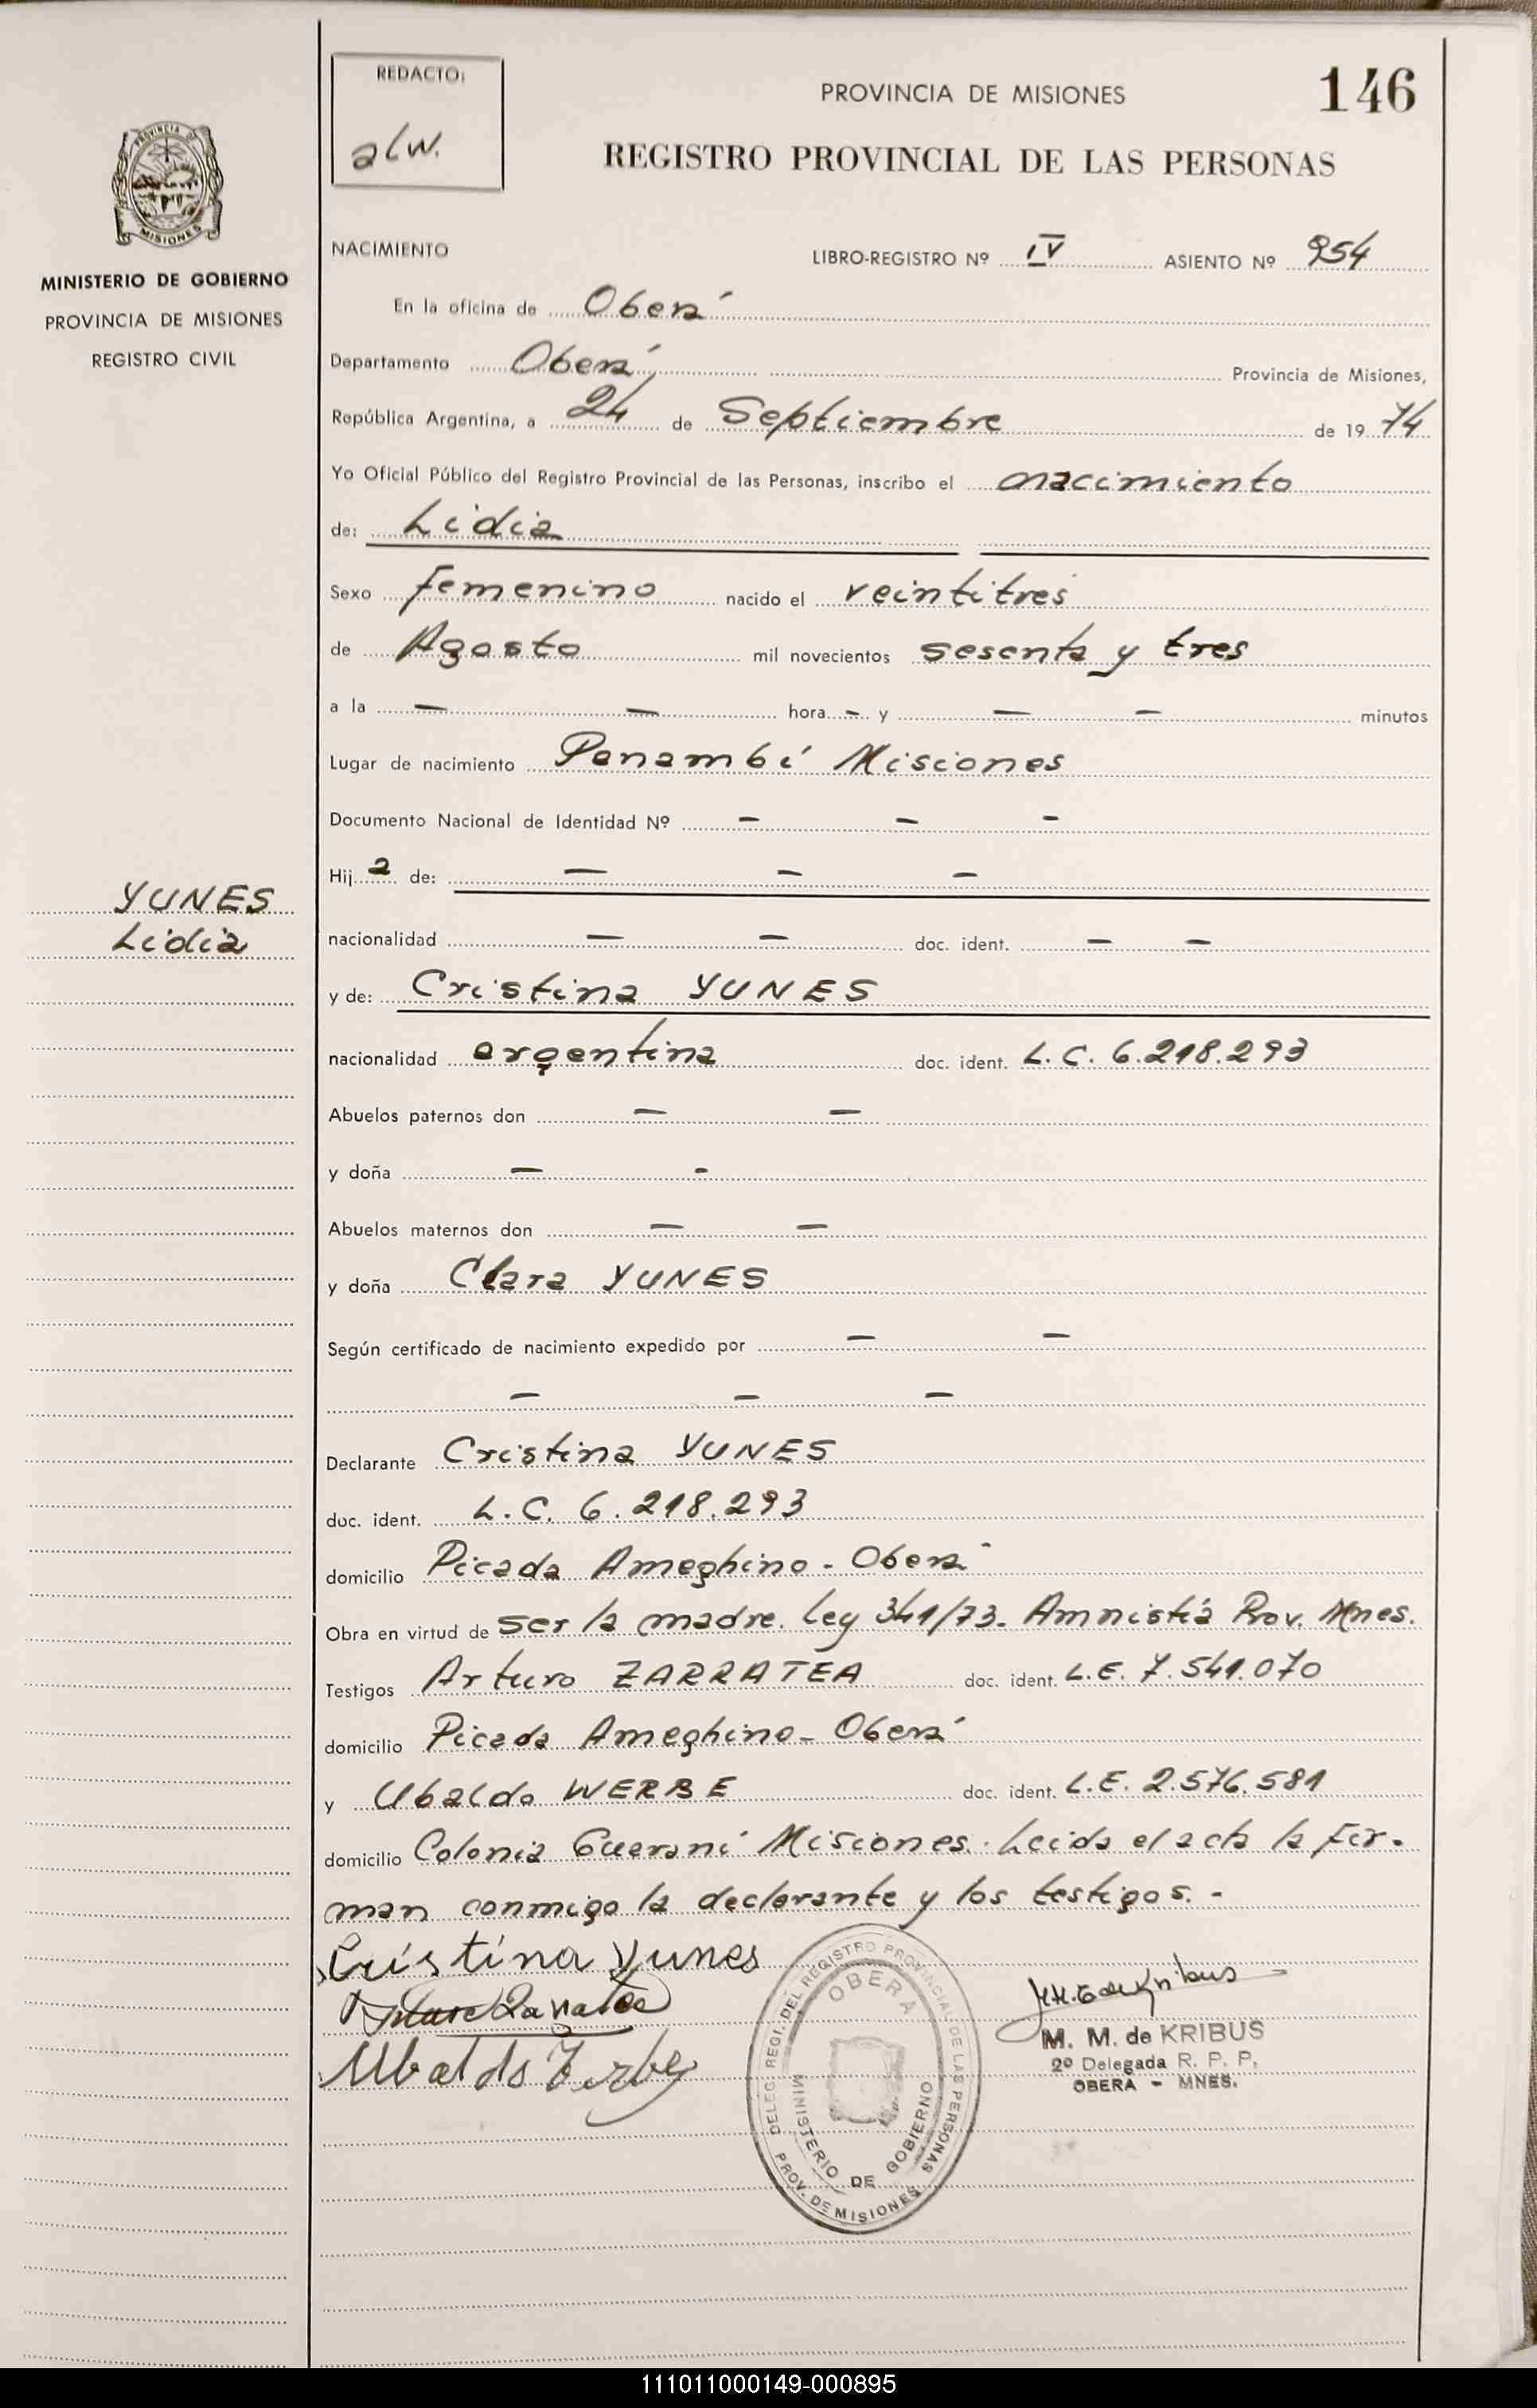 REDACTO:
alw.
PROVINCIA DE MISIONES
146
REGISTRO PROVINCIAL DE LAS PERSONAS
PROVINCIA DE
MISIONES
MINISTERIO DE GOBIERNO
PROVINCIA DE MISIONES
REGISTRO CIVIL
NACIMIENTO
LIBRO-REGISTRO Nº IV ASIENTO Nº 954
En la oficina de Oberá
Departamento Oberá Provincia de Misiones,
República Argentina, a 24 de Septiembre de 1974
Yo Oficial Público del Registro Provincial de las Personas, inscribo el nacimiento
de: Lidia
Sexo femenino nacido el veintitrés
de Agosto mil novecientos sesenta y tres
a la — — hora - y — — minutos
Lugar de nacimiento Panambí Misiones
Documento Nacional de Identidad Nº — — -
Hij a de: — — —
YUNES
Lidia
nacionalidad — — doc. ident. — —
y de: Cristina YUNES
nacionalidad argentina doc. ident. L.C. 6.218.293
Abuelos paternos don — —
y doña — -
Abuelos maternos don — —
y doña Clara YUNES
Según certificado de nacimiento expedido por — —
— — —
Declarante Cristina YUNES
doc. ident. L.C. 6.218.293
domicilio Picada Ameghino - Oberá
Obra en virtud de ser la madre. Ley 341/73. Amnistía Prov. Mnes.
Testigos Arturo ZARRATEA doc. ident. L.E. 7.541.070
domicilio Picada Ameghino - Oberá
y Ubaldo WERBE doc. ident. L.E. 2.576.581
domicilio Colonia Guaraní Misiones. Leida el acta la fir-
man conmigo la declarante y los testigos. -
Cristina Yunes
Ubaldo
DELEG. REGI. DEL REGISTRO PROVINCIAL DE LAS PERSONAS
OBERA
MINISTERIO DE GOBIERNO
PROV. DE MISIONES
M. M. de KRIBUS
2º Delegada R. P. P.
OBERA - MNES.
111011000149-000895